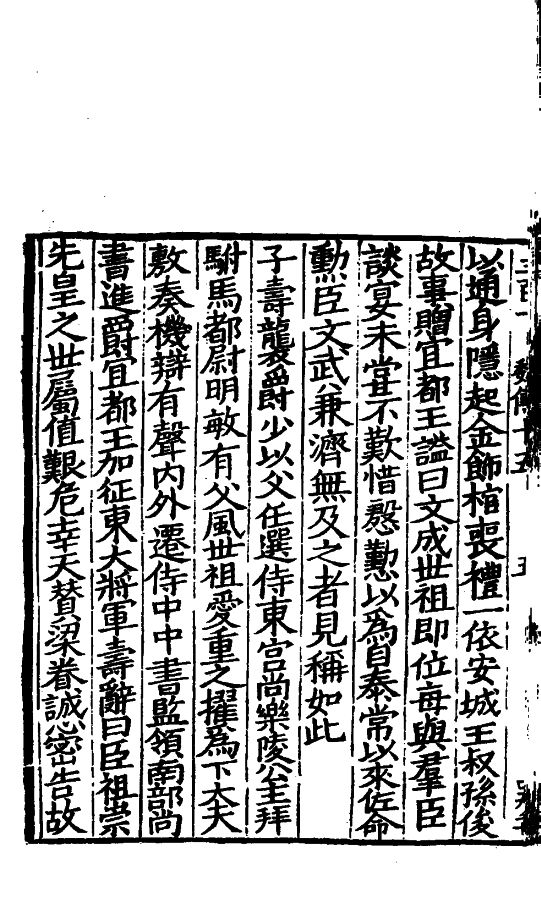 以通身隱起金飾棺喪禮一依安城王叔孫俊
故事贈宜都王謚曰文成世祖即位每與羣臣
談宴未嘗不歎惜慇懃以為自泰常以來佐命
勲臣文武兼濟無及之者見稱如此
子壽襲爵少以父任選侍東宮尚樂陵公主拜
駙馬都尉明敏有父風世祖愛重之擢為下大夫
敷奏機辯有聲內外遷侍中中書監領南部尚
書進爵宜都王加征東大將軍壽辭曰臣祖崇
先皇之世屬值艱危幸天贊梁眷誠密告故